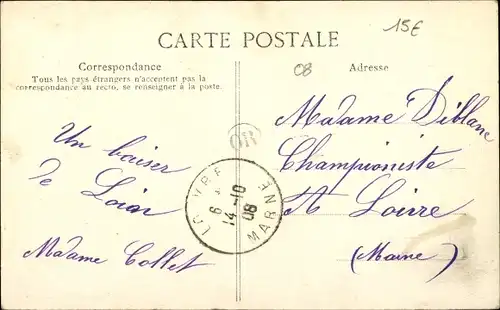 15€
CARTE POSTALE
Correspondance
Tous les pays étrangers n'acceptent pas la
correspondance au recto, se renseigner à la poste.
08
Adresse
Madame Diblanc
Championiste
A Loivre
(Marne)
OR
Un baiser
de Loin
Madame Collet
LOIVRE
6
14 -10
08
MARNE